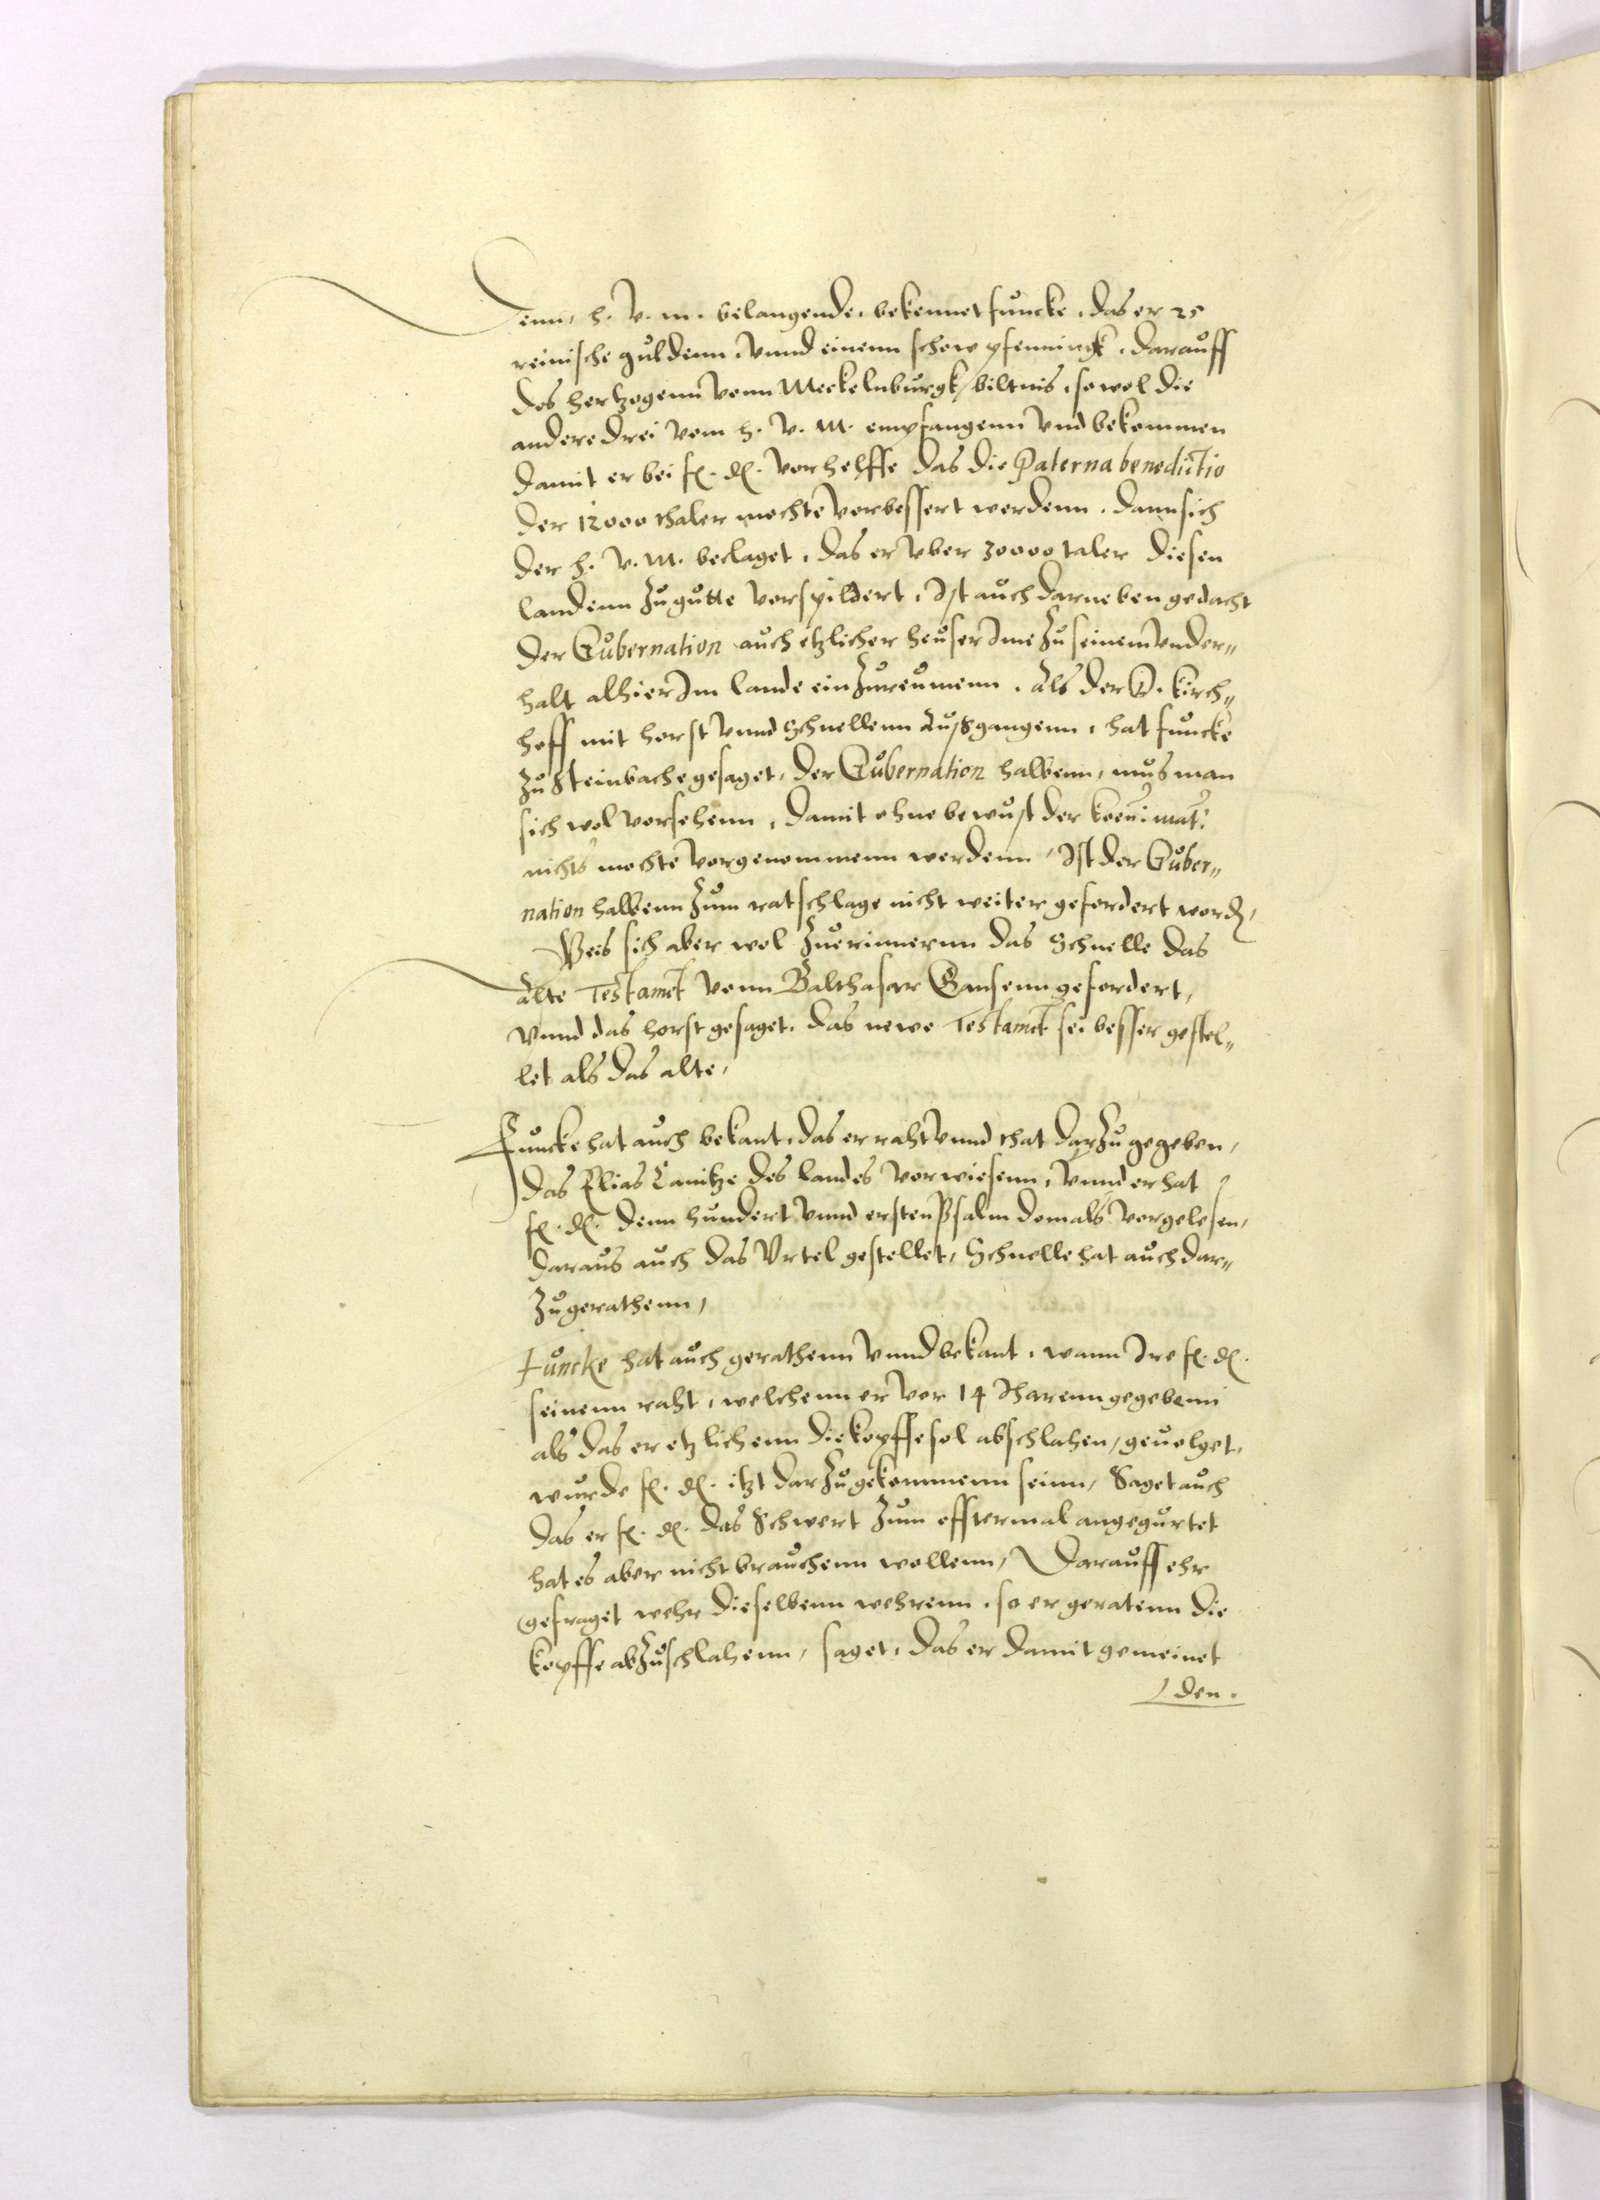 Denn, h. v. m. belangende, bekennet funcke, das er 25
reinische guldenn, vnnd einenn schow pfenningk, darauff
des hertzogenn vonn Meckelnburgk, biltnis, so wol die
andere drei vom h. v. M. empfangenn vnd bekommen
damit er bei f. d. vorhelffe das die Paterna benedictio
der 12000 thaler mochte vorbessert werdenn, dann sich
der h. v. M. beclaget, das er vber 30000 taler diesen
landenn zu gutte vorspildert, Ist auch darneben gedacht
der Gubernation auch etzlicher heuser Ime zu seinem vnder„
halt alhier Im lande einzureumenn. Als der D. Kirch„
hoff mit horst vnnd Schnellenn Außgangenn, hat funcke
zu Steinbach gesaget, der Gubernation halbenn, mus man
sich wol vorsehenn, damit ohne bewust der koen: mat:
nichts mochte vorgenommenn werdenn, Ist der Guber„
nation halbenn zum ratschlage nicht weiter gefordert word,
Weis sich aber wol zuerinnernn das Schnelle das
alte Testamet vonn Balthasar Gansenn gefordert,
vnnd das horst gesaget, das newe Testamet sei besser gestel„
let als das alte,
Funcke hat auch bekant, das er raht vnnd that darzu gegeben,
das Elias Canitze des landes vorwiesenn, vnnd er hat
f. d. denn hundert vnnd ersten Psalm domals vorgelesen,
daraus auch das Vrtel gestellet, Schnelle hat auch dar„
zu gerathenn,
Funcke hat auch gerathenn vnnd bekant, wann Ire f. d.
seinenn raht, welchenn er vor 14 Iharenn gegebenn
als das er etzlichenn die kopffe sol abschlahen, geuolget,
wurde f. d. itzt darzu gekommenn seinn, Saget auch
das er f. d. das Schwert zum offtermal angegurtet
hat es aber nicht brauchenn wollenn, Darauff ehr
gefraget wehr dieselbenn wehrenn, so er geratenn die
kopffe abzuschlahenn, saget, das er damit gemeinet
den.